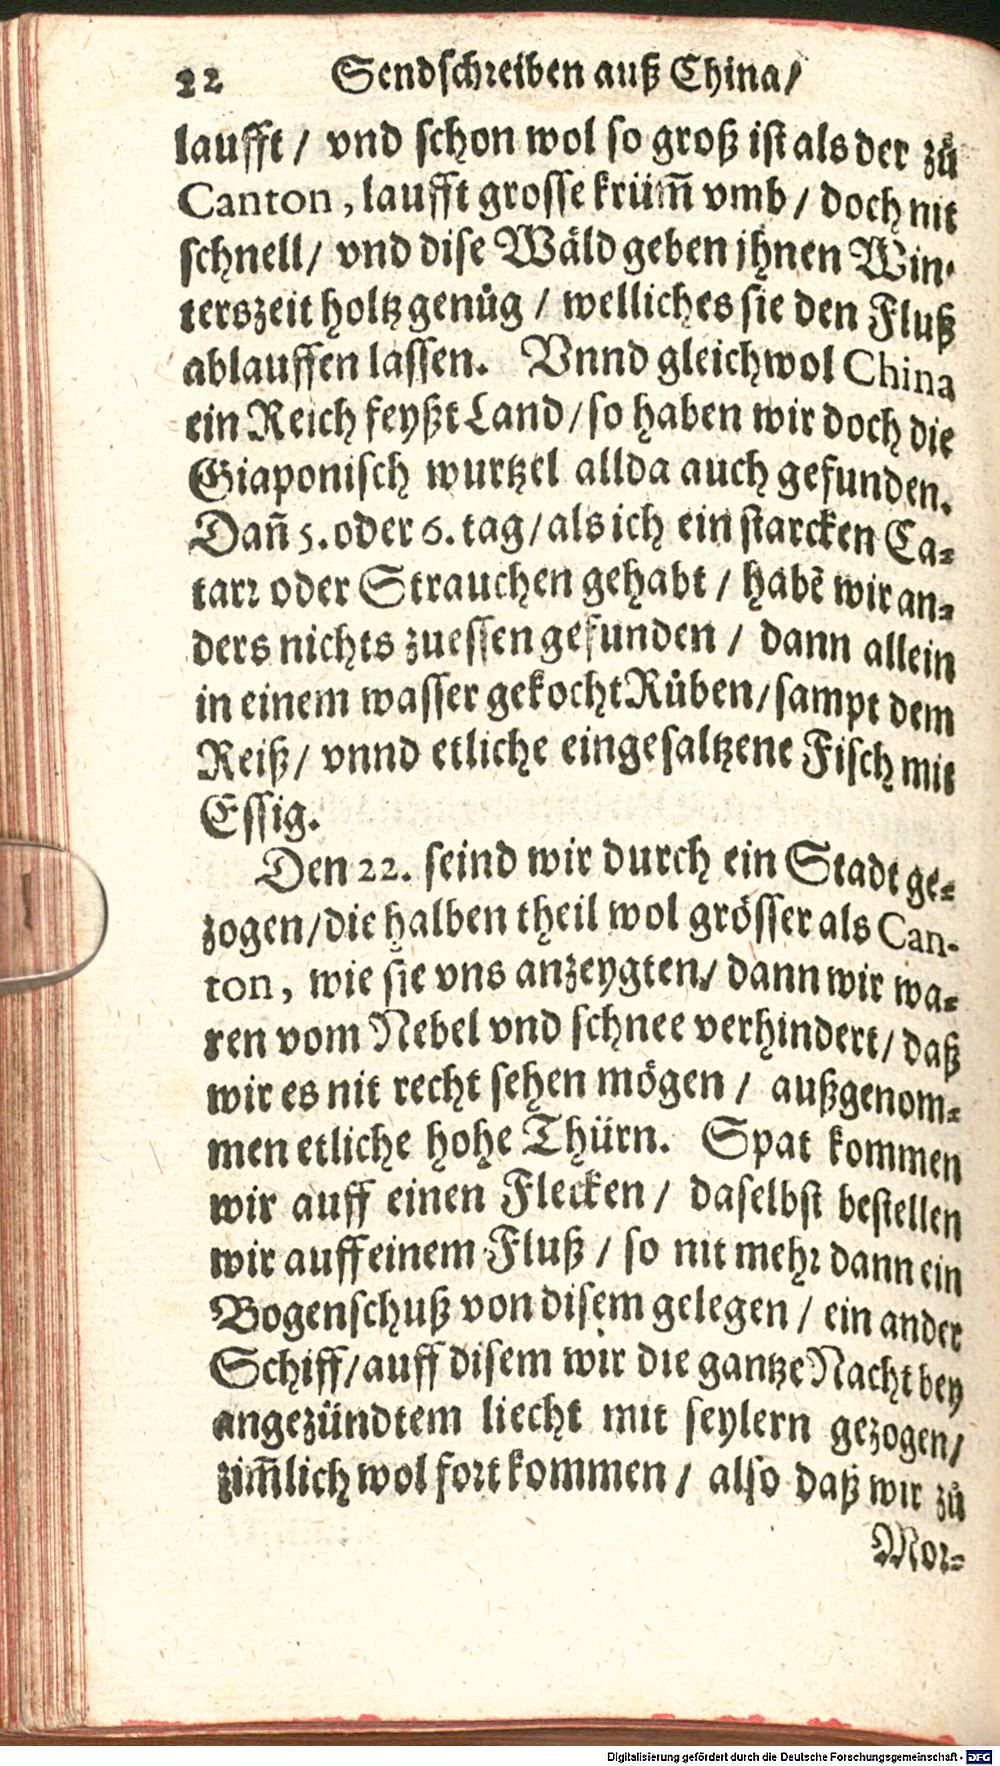 22 Sendschreiben auß China/
laufft/ vnd schon wol so groß ist als der zů
Canton, laufft grosse krüm̃ vmb/ doch nit
schnell/ vnd dise Wäld geben jhnen Win-
terszeit holtz genůg/ welliches sie den Fluß
ablauffen lassen. Vnnd gleichwol China
ein Reich feyßt Land/ so haben wir doch die
Giaponisch wurtzel allda auch gefunden.
Dañ 5. oder 6. tag/ als ich ein starcken Ca-
tarr oder Strauchen gehabt/ habẽ wir an-
ders nichts zuessen gefunden/ dann allein
in einem wasser gekocht Rüben/ sampt dem
Reiß/ vnnd etliche eingesaltzene Fisch mit
Essig.
Den 22. seind wir durch ein Stadt ge-
zogen/ die halben theil wol grösser als Can-
ton, wie sie vns anzeygten/ dann wir wa-
ren vom Nebel vnd schnee verhindert/ daß
wir es nit recht sehen mögen/ außgenom-
men etliche hohe Thürn. Spat kommen
wir auff einen Flecken/ daselbst bestellen
wir auff einem Fluß/ so nit mehr dann ein
Bogenschuß von disem gelegen/ ein ander
Schiff/ auff disem wir die gantze Nacht bey
angezündtem liecht mit seylern gezogen/
zim̃lich wol fort kommen/ also daß wir zů
Mor-
Digitalisierung gefördert durch die Deutsche Forschungsgemeinschaft - DFG